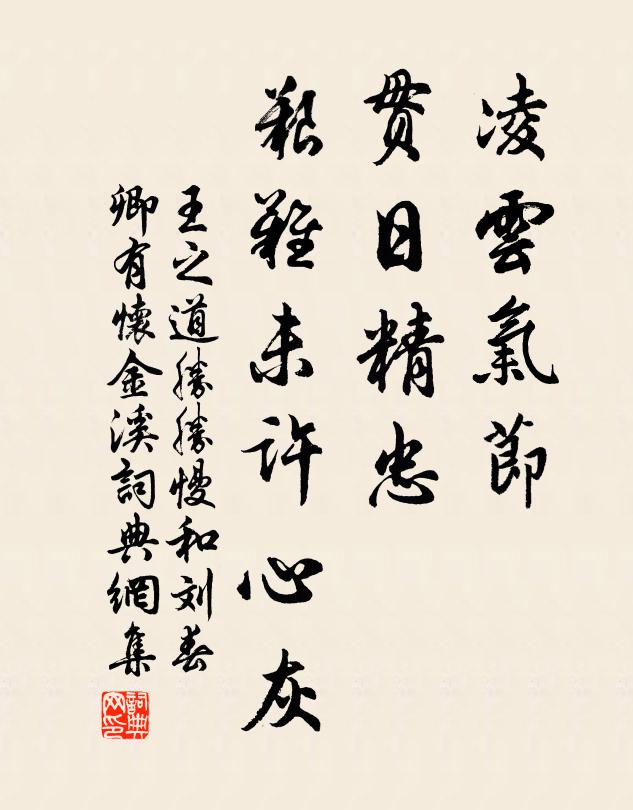 凌雲氣節
貫日精忠
艱難未許心灰
王之道勝勝慢和刘春
卿有懷金溪詞典網集
詞典网印